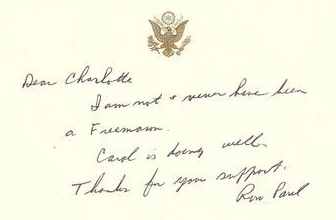 Dear Charlotte
I am not + never have been
a Freemason.
Carol is doing well.
Thanks for your support.
Ron Paul